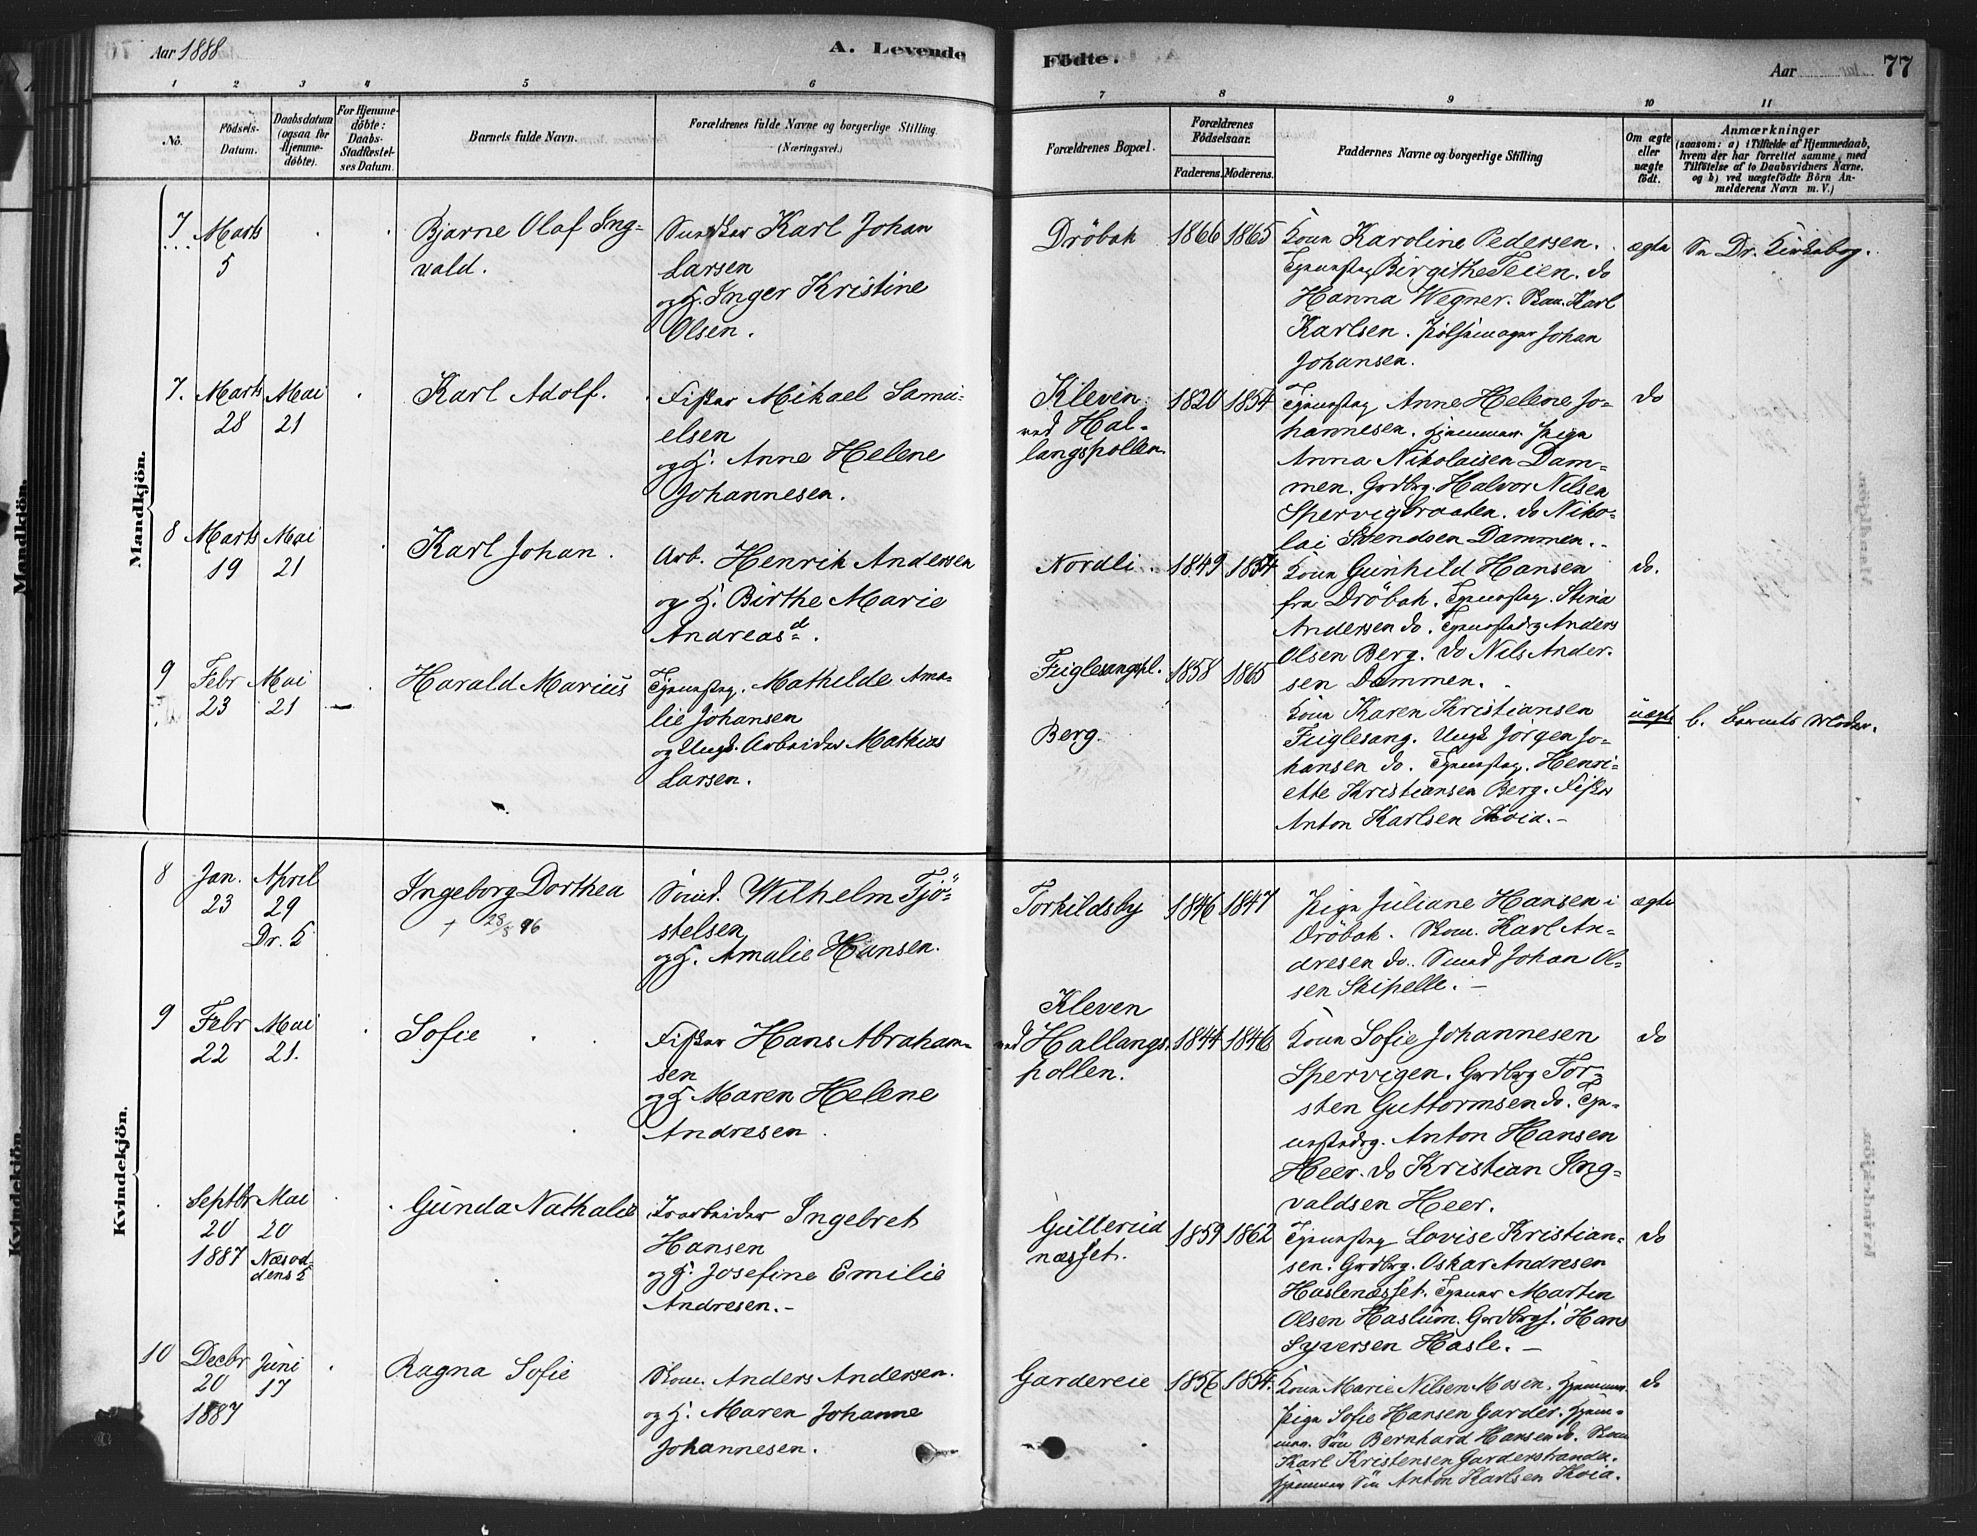 Aar 1888
A. Levende
Födte.
Aar 77
1 2 3 4 5 6 7 8 9 10 11
No.
Födsels-
Datum.
Daabsdatum
(ogsaa for
Hjemme-
döbte).
For Hjemme-
döbte:
Daabs-
Stadfæstel-
ses Datum.
Barnets fulde Navn.
Forældrenes fulde Navne og borgerlige Stilling.
(Næringsvei.)
Forældrenes Bopæl.
Forældrenes
Födselsaar.
Faderens. Moderens.
Faddernes Navne og borgerlige Stilling
Om ægte
eller
uægte
födt.
Anmærkninger
(saasom: a) i Tilfælde af Hjemmedaab,
hvem der har forrettet samme, med
Tilföielse af to Daabsvidners Navne,
og b) ved uægtefödte Börn An-
melderens Navn m. V.)
Mandkjön.
7 Marts
5
Bjarne Olaf Ing-
vald.
Karl Johan
Larsen
og H. Inger Kristine
Olsen.
Dröbak 1866 1865
Kona Karoline Pedersen.
Birgithe Teien. do
Hanna Wegner. Karl
Karlsen. Johan
Johansen.
ægte
Se Dr. Kirkebog.
7. Marts Mai
28 21
Karl Adolf.
Fisker Mikael Samu-
elsen
og H. Anne Helene
Johannesen.
Kleven
ved Hal-
langspollen
1820 1854
Anne Helene Jo-
hannesen. Pige
Anna Nikolaisen Dam-
men. Grdbrg. Halvor Nilsen
Spervigbraaten. do Niko-
lai Svendsen Dammen.
do
8 Marts Mai
19 21
Karl Johan.
Arb. Henrik Andersen
og H. Birthe Marie
Andreasd.
Nordli. 1849 1854
Kona Gunhild Hansen
fra Dröbak. Stina
Andersen do. Anders
Olsen Berg. do Nils Ander-
sen Dammen.
do.
9 Febr Mai
23 21
Harald Marius
Mathilde Ama-
lie Johansen
og Ungk. Arbeider Mathias
Larsen.
Fuglesangspl. 1858 1865
Berg.
Kona Karen Kristiansen
Fuglesang. Ungk Jörgen Jo-
hansen do. Henri-
ette Kristiansen Berg. Fisker
Anton Karlsen Skoia.
uægte
b. Barnets Moder.
Kvindekjön.
8 Jan. April
23 29
Dr. K
Ingeborg Dorthea
+ 28/8 96
Smed. Wilhelm Tjö-
stelsen
og H. Amalie Hansen.
Torkildsby 1846 1847
Pige Juliane Hansen i
Dröbak. Karl An-
dresen do. Smed Johan Ol-
sen Skipelle.
ægte
9 Febr Mai
22 21.
Sofie
Fisker Hans Abraham-
sen
og H Maren Helene
Andresen.
Kleven
ved Hallangs
pollen.
1844 1846
Kona Sofie Johannesen
Spervigen. Grdbrg Tor-
sten Guttormsen do.
Anton Hansen
Heer. do Kristian Ing-
valdsen Heer.
do
Septbr Mai
20 20
1887 Næsod-
dens K
Gunda Nathalie
Ingebret
Hansen
og H. Josefine Emilie
Andresen.
Gullerud
næsset.
1859 1862
Lovise Kristian-
sen. Grdbrg. Oskar Andresen
Haslenæsset. Martin
Olsen Haslum. Hans
Syversen Hasle.
do
10 Decbr Juni
20 17
1887
Ragna Sofie
Anders Andersen.
og H. Maren Johanne
Johannesen.
Gardereie 1856 1854.
Kona Marie Nilsen Mosen.
Pige Sofie Hansen Garder.
Bernhard Hansen do.
Karl Kristensen Garderstranda.
Anton Karlsen Skoia.
do